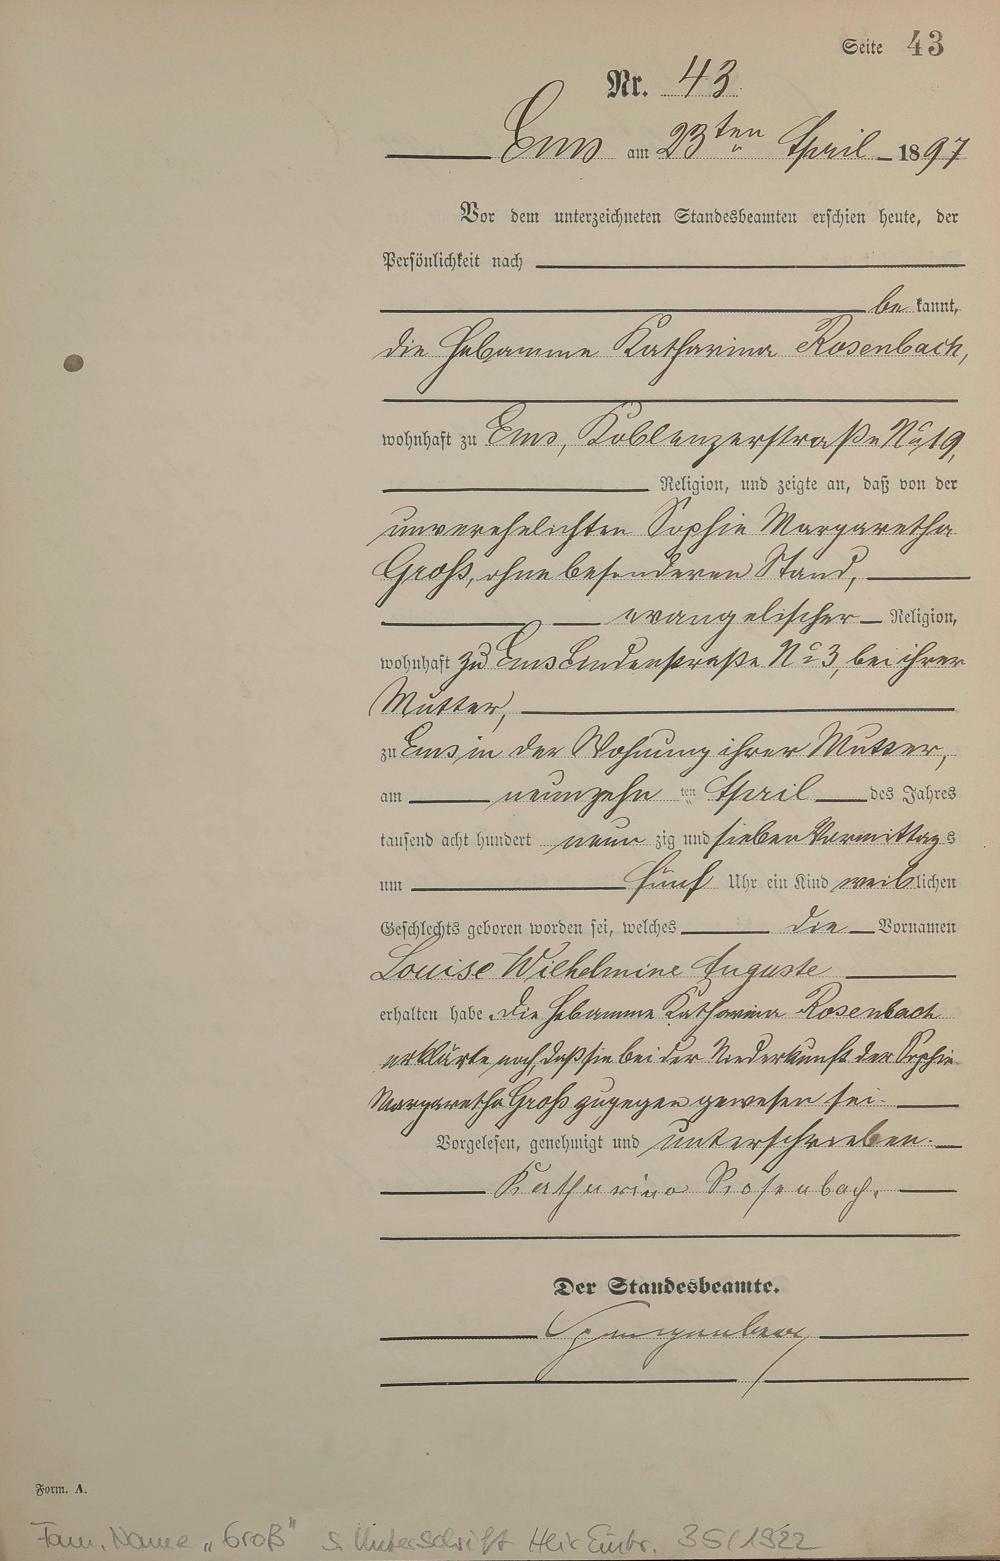 Seite 43
Nr. 43
Ems am 23ten April 1897
Vor dem unterzeichneten Standesbeamten erschien heute, der
Persönlichkeit nach
be kannt,
die Hebamme Katharina Rosenbach,
wohnhaft zu Ems, Koblenzerstraße No 19,
Religion, und zeigte an, daß von der
unverehelichten Sophie Margaretha
Groß, ohne besonderen Stand,
evangelischer Religion,
wohnhaft zu Ems Lindenstraße No 3, bei ihrer
Mutter,
zu Ems in der Wohnung ihrer Mutter,
am neunzehn ten April des Jahres
tausend acht hundert neun zig und sieben Vormittags
um fünf Uhr ein Kind weiblichen
Geschlechts geboren worden sei, welches die Vornamen
Louise Wilhelmine Auguste
erhalten habe. Die Hebamme Katharina Rosenbach
erklärte noch, daß sie bei der Niederkunft der Sophie
Margaretha Groß zugegen gewesen sei.
Vorgelesen, genehmigt und unterschrieben.
Katharina Rosenbach.
Der Standesbeamte.
Spangenberg
Form. A.
Fam. Name „Groß" s. Unterschrift Heir. Eintr. 35/1922